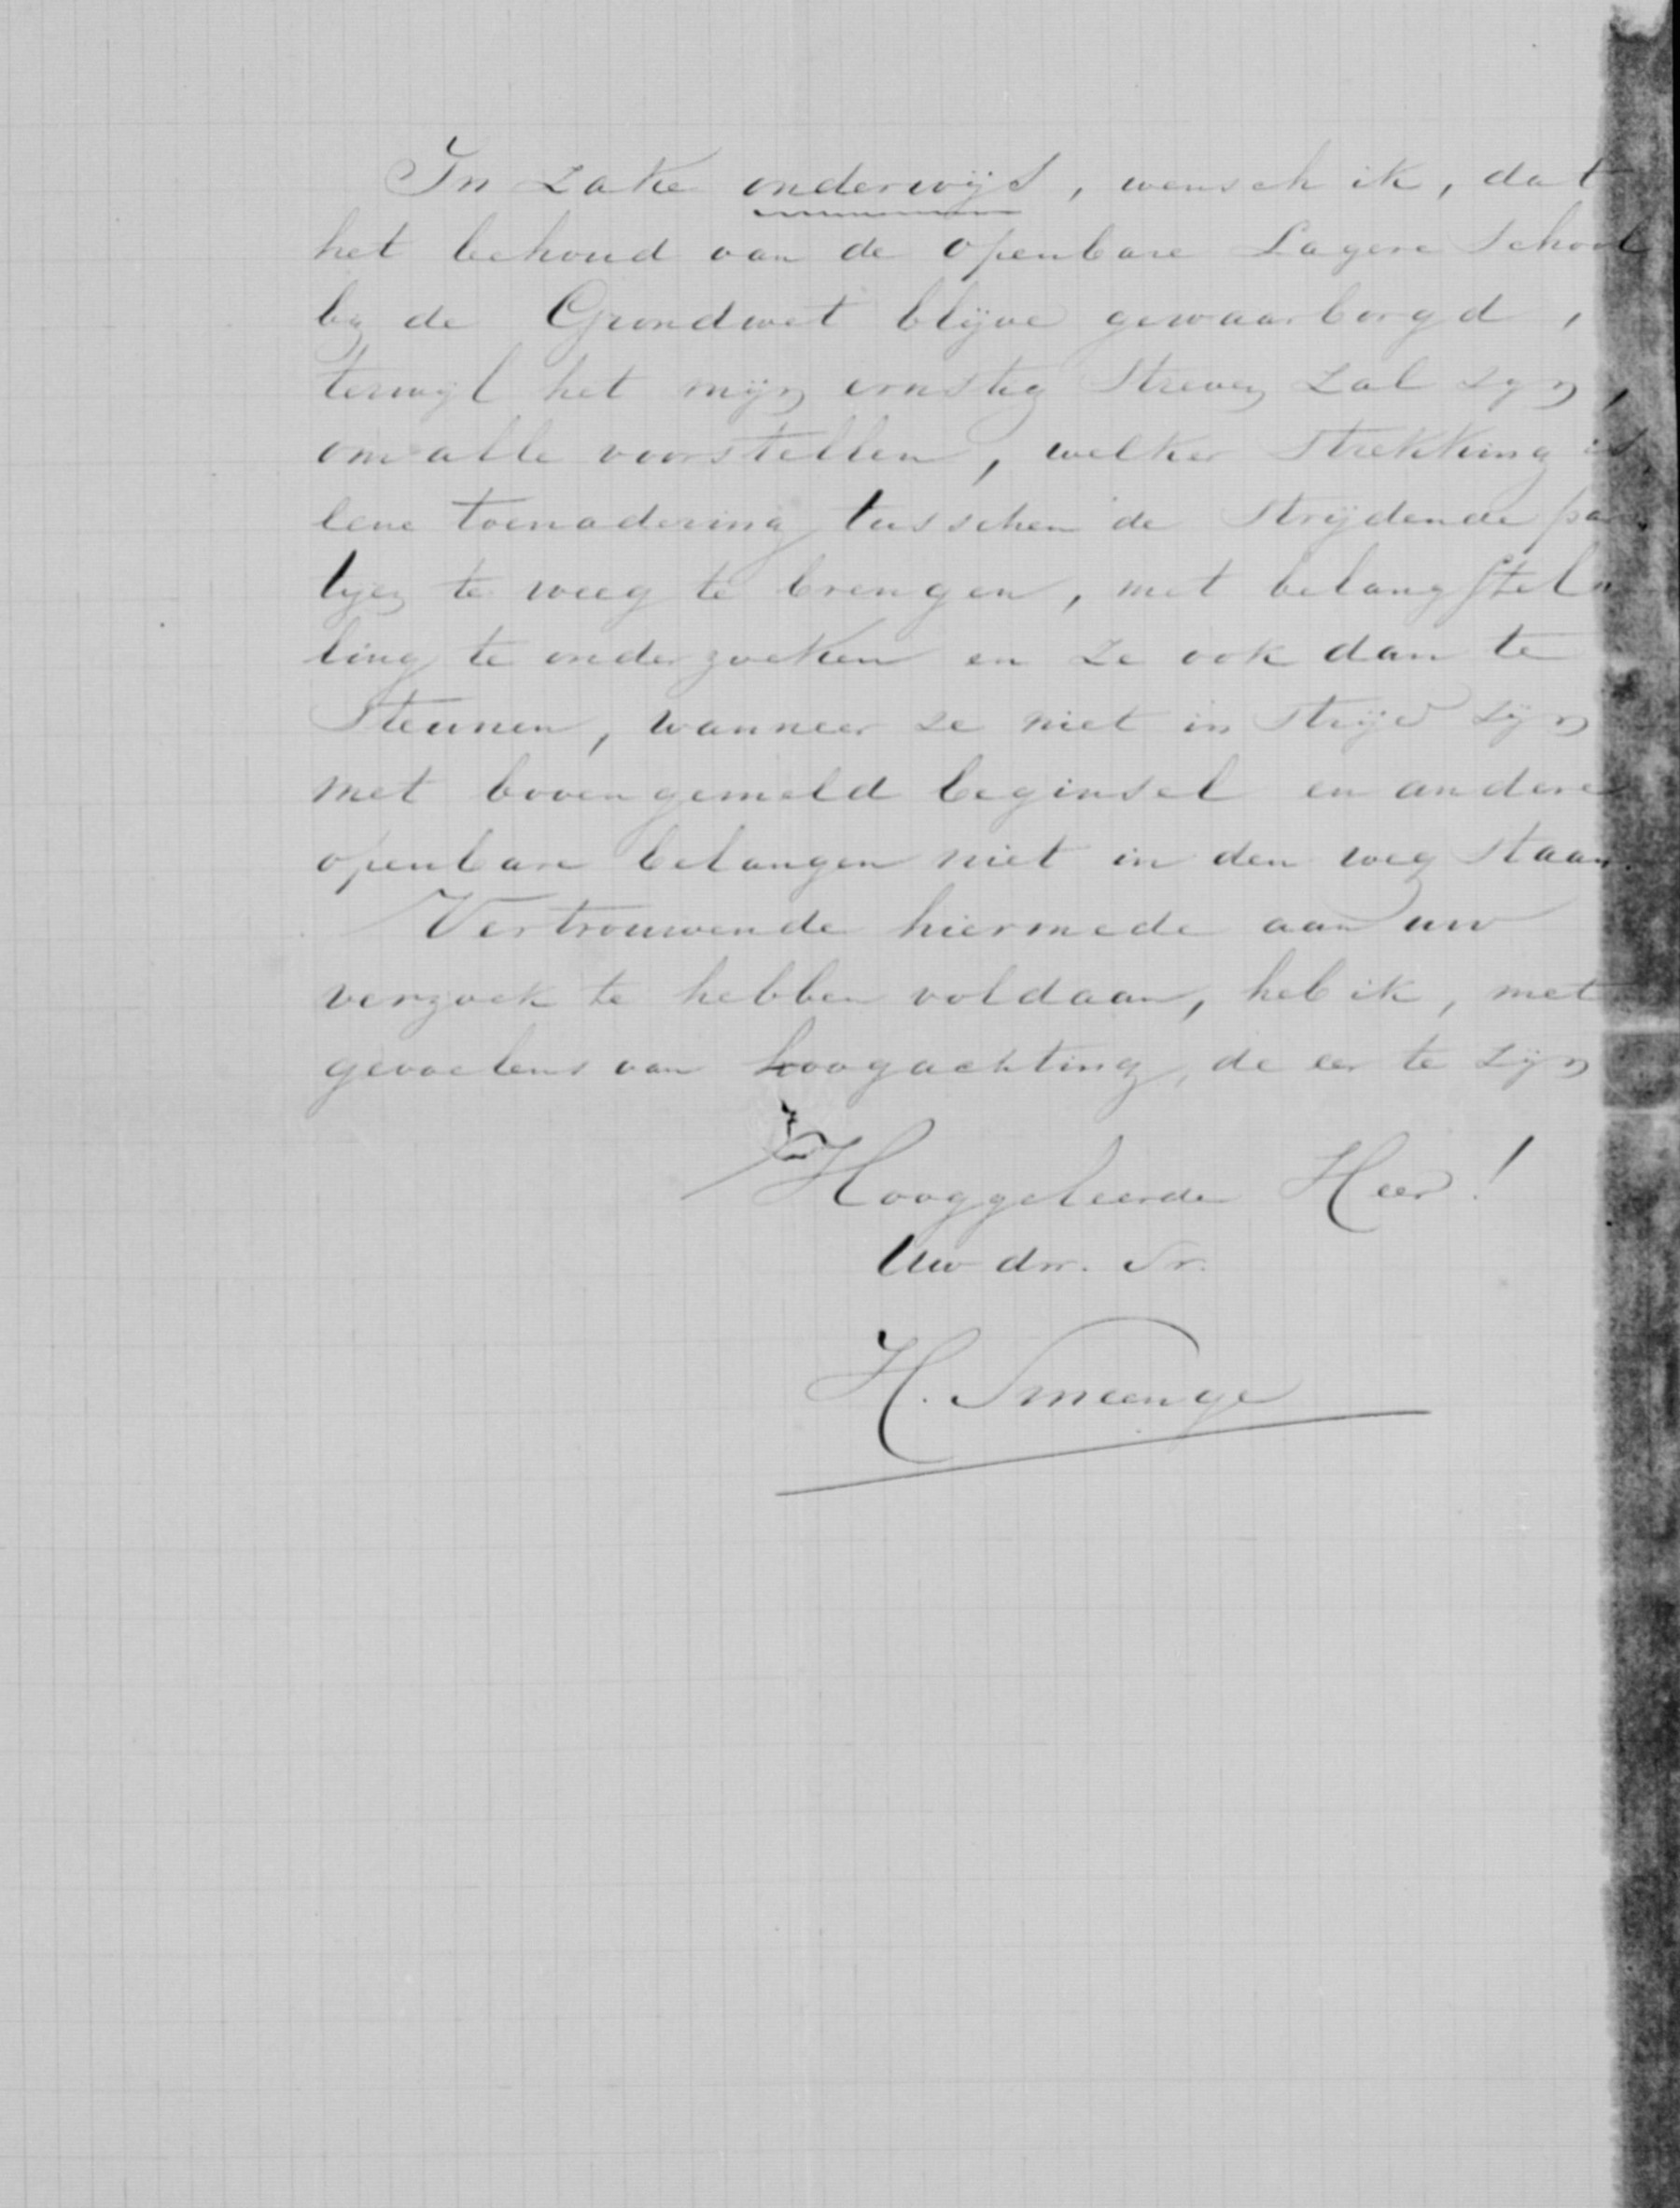 In zake onderwijs, wensch ik, dat
het behoud van de openbare Lagere School
bij de Grondwet blijve gewaarborgd,
terwijl het mijn ernstig streven zal zijn,
om alle voorstellen, welker strekking is,
eene toenadering tusschen de strijdende par-
tijen te weeg te brengen, met belangstel-
ling te onderzoeken en ze ook dan te
steunen, wanneer ze niet in strijd zijn
met bovengemeld beginsel en andere
openbare belangen niet in den weg staan.
Vertrouwende hiermede aan uw
verzoek te hebben voldaan, heb ik, met
gevoelens van hoogachting, de eer te zijn
Hooggeleerde Heer!
Uw dw. Dr.
H. Smeenge